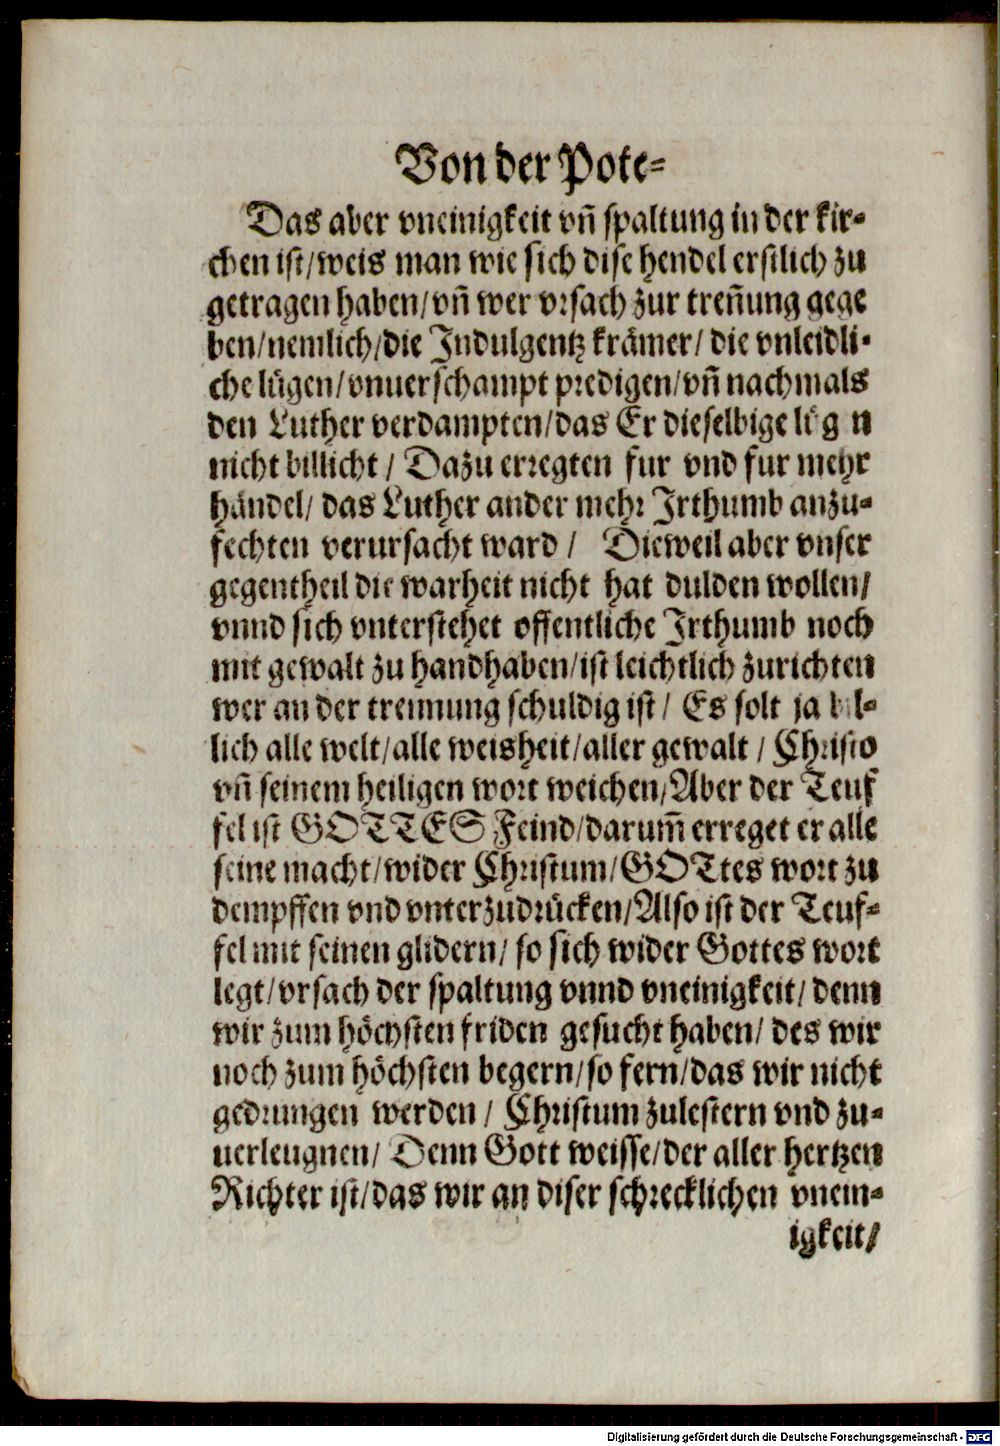 Von der Pote-
Das aber vneinigkeit vñ spaltung in der kir-
chen ist/weis man wie sich dise hendel erstlich zu
getragen haben/vñ wer vrsach zur treñung gege
ben/nemlich/die Indulgentz krämer/ die vnleidli-
che lügen/vnuerschampt predigen/vñ nachmals
den Luther verdampten/das Er dieselbige lüg n
nicht billicht / Dazu erregten fur vnd fur mehr
händel/ das Luther ander mehr Irthumb anzu-
fechten verursacht ward / Dieweil aber vnser
gegentheil die warheit nicht hat dulden wollen/
vnnd sich vnterstehet offentliche Irthumb noch
mit gewalt zu handhaben/ist leichtlich zurichten
wer an der trennung schuldig ist / Es solt ja bil-
lich alle welt/alle weisheit/aller gewalt / Christo
vñ seinem heiligen wort weichen/Aber der Teuf
fel ist GOTTES Feind/darum̃ erreget er alle
seine macht/wider Christum/GOTtes wort zu
dempffen vnd vnterzudrücken/Also ist der Teuf-
fel mit seinen glidern/ so sich wider Gottes wort
legt/vrsach der spaltung vnnd vneinigkeit/ denn
wir zum höchsten friden gesucht haben/ des wir
noch zum höchsten begern/so fern/das wir nicht
gedrungen werden / Christum zulestern vnd zu-
uerleugnen/ Denn Gott weisse/der aller hertzen
Richter ist/das wir an diser schrecklichen vnein-
igkeit/
Digitalisierung gefördert durch die Deutsche Forschungsgemeinschaft - DFG